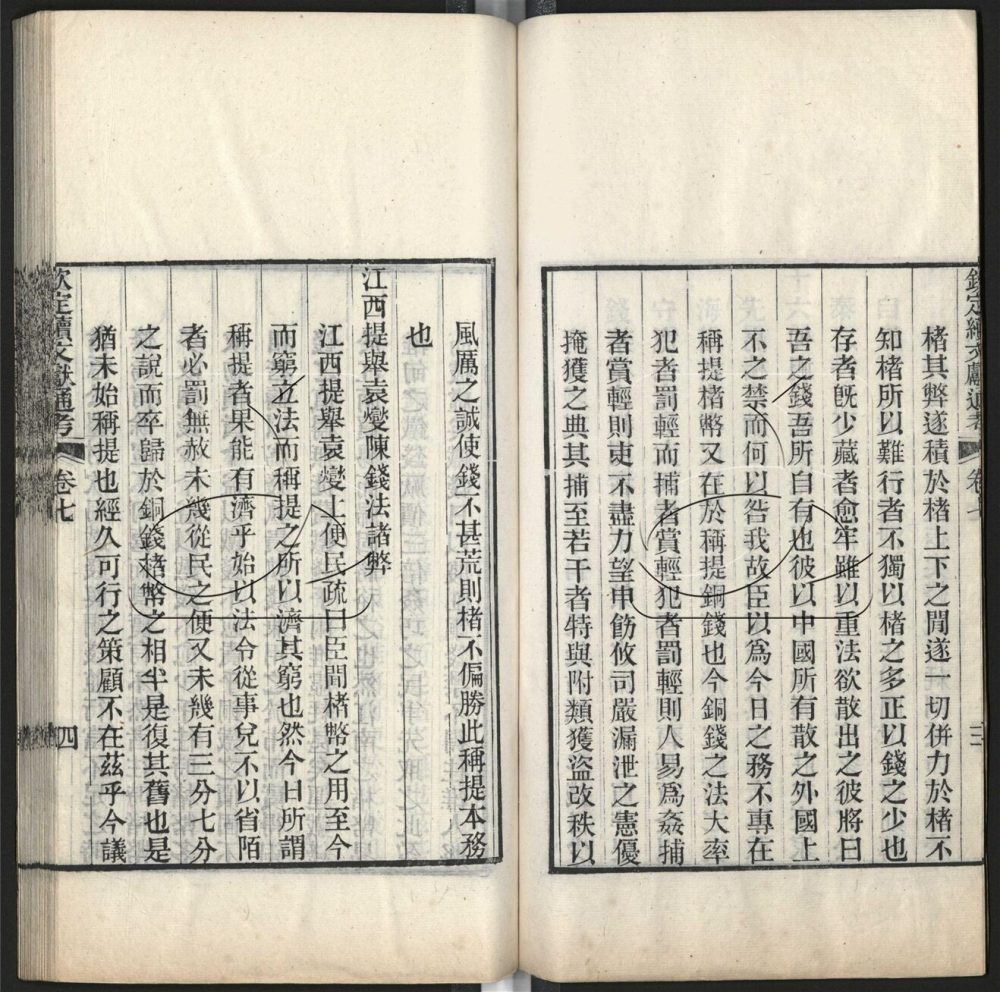 欽定續文獻通考
卷七
三
楮其弊遂積於楮上下之閒遂一切併力於楮不
知楮所以難行者不獨以楮之多正以錢之少也
存者旣少藏者愈牢雖以重法欲散出之彼將曰
吾之錢吾所自有也彼以中國所有散之外國上
不之禁而何以咎我故臣以爲今日之務不專在
稱提楮幣又在於稱提銅錢也今銅錢之法大率
犯者罰輕而捕者賞輕犯者罰輕則人易爲姦捕
者賞輕則吏不盡力望申飭攸司嚴漏泄之憲優
掩獲之典其捕至若干者特與附類獲盜改秩以
風厲之誠使錢不甚荒則楮不偏勝此稱提本務
也
江西提舉袁燮陳錢法諸弊
江西提舉袁燮上便民疏曰臣聞楮幣之用至今
而窮立法而稱提之所以濟其窮也然今日所謂
稱提者果能有濟乎始以法令從事兒不以省陌
者必罰無赦未幾從民之便又未幾有三分七分
之說而卒歸於銅錢楮幣之相半是復其舊也是
猶未始稱提也經久可行之策顧不在茲乎今議
欽定續文獻通考
卷七
四